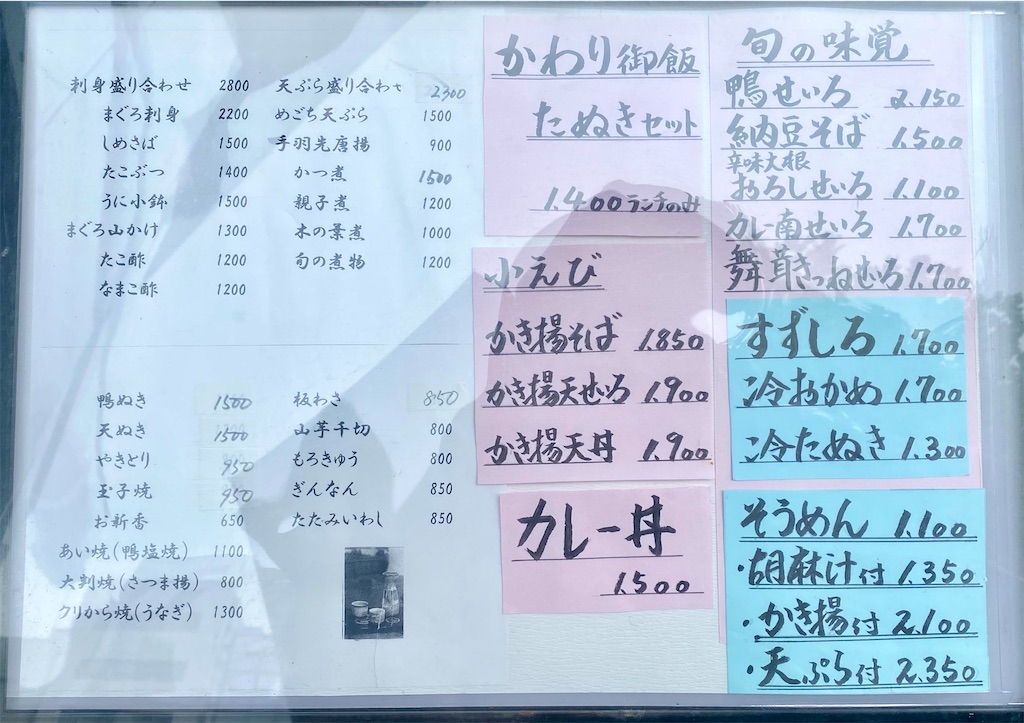 刺身盛り合わせ 2800
まぐろ刺身 2200
しめさば 1500
たこぶつ 1400
うに小鉢 1500
まぐろ山かけ 1300
たこ酢 1200
なまこ酢 1200
天ぷら盛り合わせ 2300
めごち天ぷら 1500
手羽先唐揚 900
かつ煮 1500
親子煮 1200
木の葉煮 1000
旬の煮物 1200
鴨ぬき 1500
天ぬき 1500
やきとり 950
玉子焼 950
お新香 650
あい焼(鴨塩焼) 1100
大判焼(さつま揚) 800
クリから焼(うなぎ) 1300
板わさ 850
山芋千切 800
もろきゅう 800
ぎんなん 850
たたみいわし 850
かわり御飯
たぬきセット
1.400 ランチのみ
小えび
かき揚そば 1.850
かき揚天せいろ 1.900
かき揚天丼 1.900
カレー丼
1.500
旬の味覚
鴨せいろ 2.150
納豆そば 1.500
辛味大根
おろしせいろ 1.100
カレー南せいろ 1.700
舞茸きつねせいろ 1.700
すずしろ 1.700
冷おかめ 1.700
冷たぬき 1.300
そうめん 1.100
・胡麻汁付 1.350
・かき揚付 2.100
・天ぷら付 2.350